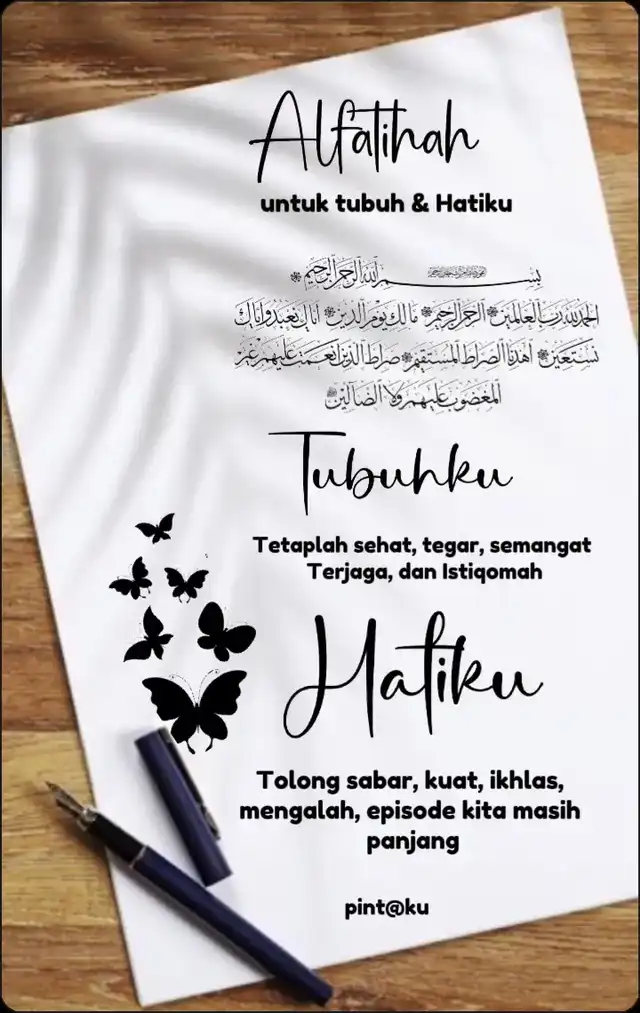 Alfatihah
untuk tubuh & Hatiku
بسم الله الرحمن الرحيم
الحمد لله رب العالمين الرحمن الرحيم مالك يوم الدين اياك نعبد واياك
نستعين اهدنا الصراط المستقيم صراط الذين انعمت عليهم غير
المغضوب عليهم ولا الضالين
Tubuhku
Tetaplah sehat, tegar, semangat
Terjaga, dan Istiqomah
Hatiku
Tolong sabar, kuat, ikhlas,
mengalah, episode kita masih
panjang
pint@ku